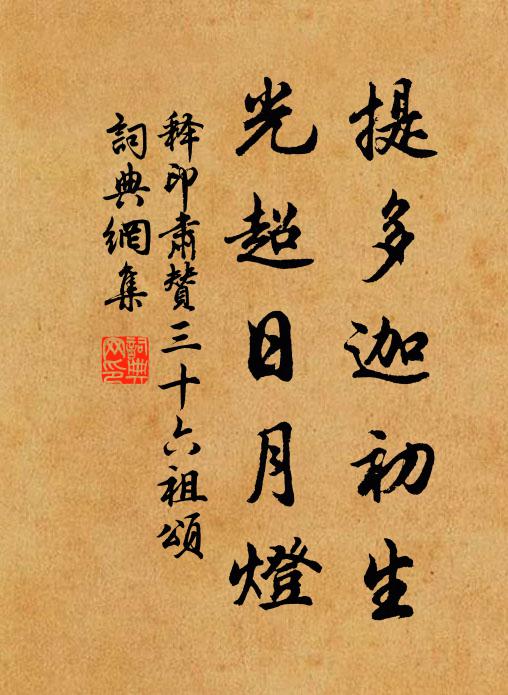 提多迦初生
光超日月燈
释印肅贊三十六祖頌
詞典網集
詞典網印